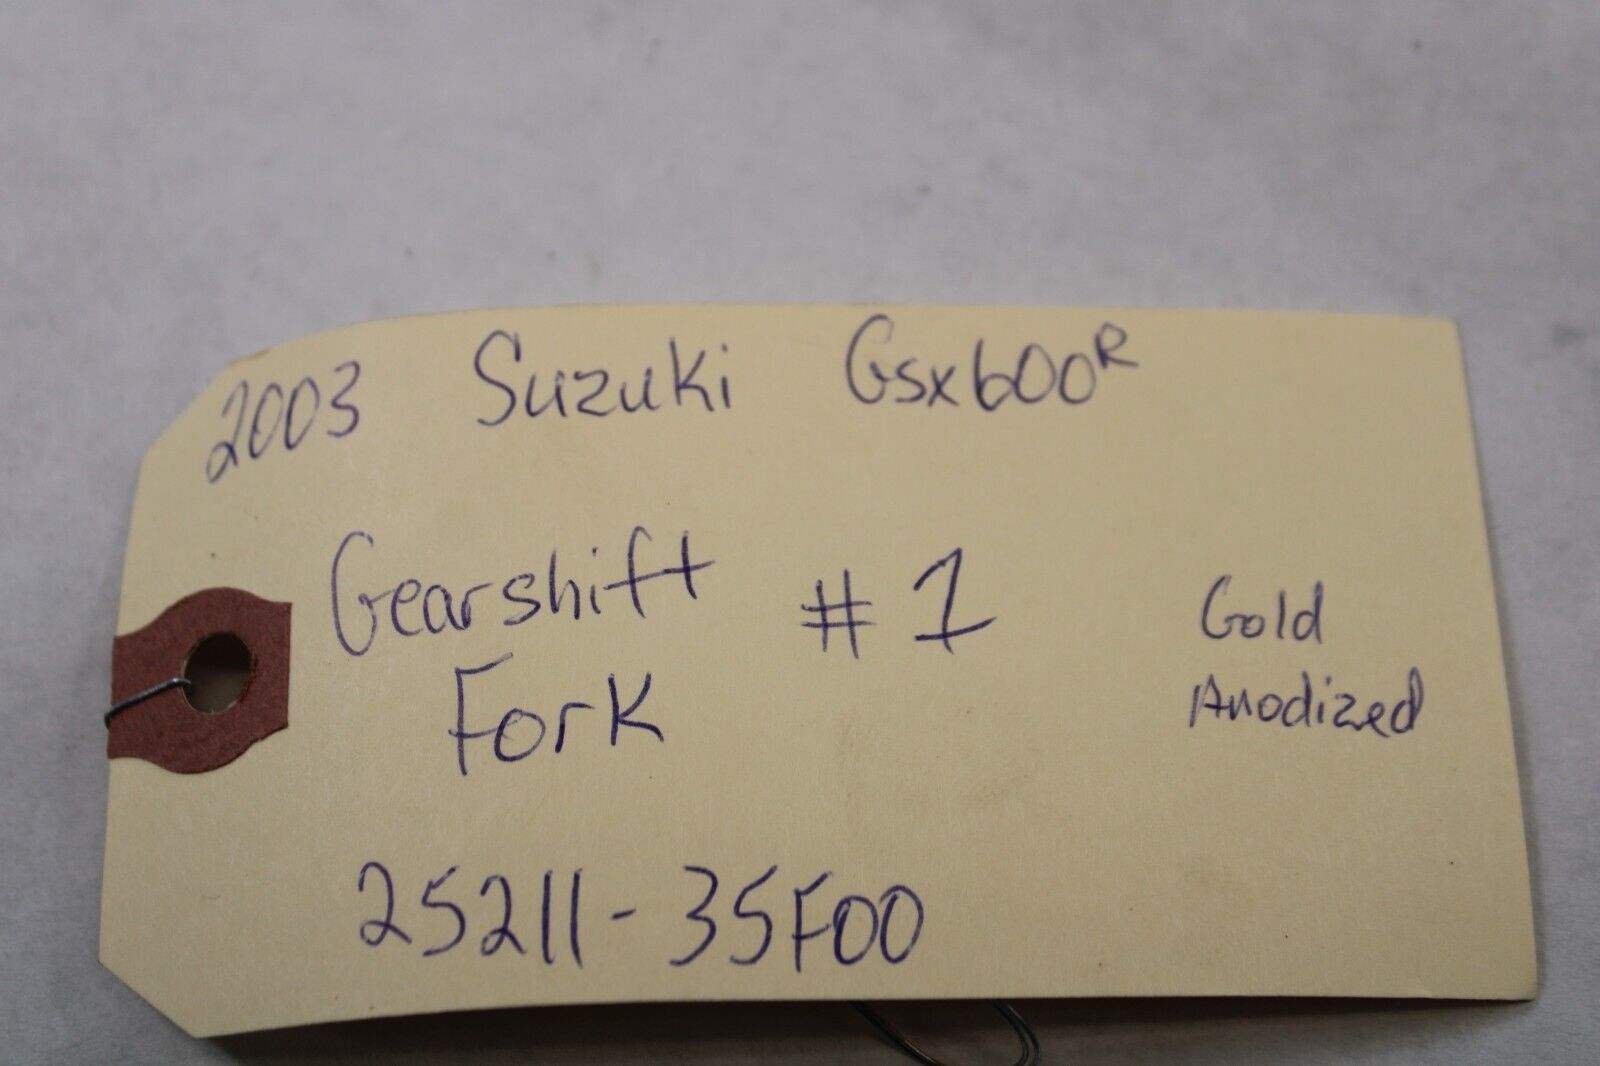 2003 Suzuki Gsx600R
Gearshift #1
Fork
Gold
Anodized
25211-35F00